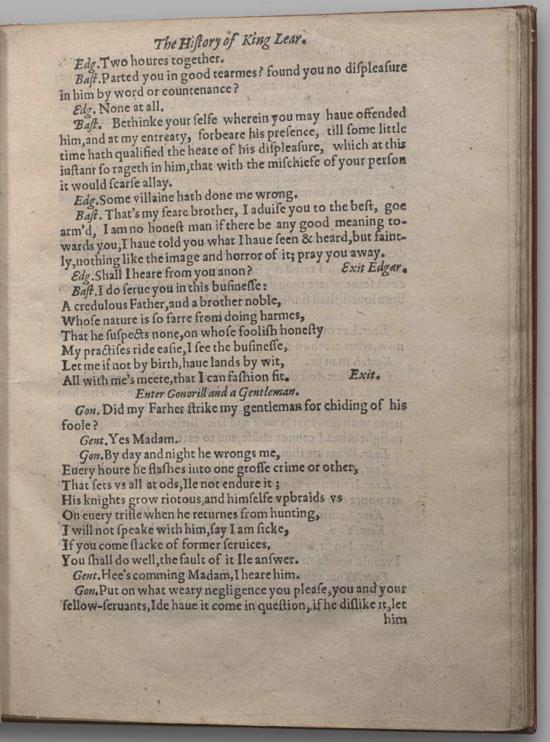 The Hiſtory of King Lear.
Edg. Two houres together.
Baſt. Parted you in good tearmes? found you no diſpleaſure
in him by word or countenance?
Edg. None at all.
Baſt. Bethinke your ſelfe wherein you may haue offended
him, and at my entreaty, forbeare his preſence, till ſome little
time hath qualified the heate of his diſpleaſure, which at this
inſtant ſo rageth in him, that with the miſchiefe of your perſon
it would ſcarſe allay.
Edg. Some villaine hath done me wrong.
Baſt. That's my feare brother, I aduiſe you to the beſt, goe
arm'd, I am no honeſt man if there be any good meaning to-
wards you, I haue told you what I haue ſeen & heard, but faint-
ly, nothing like the image and horror of it; pray you away.
Edg. Shall I heare from you anon? Exit Edgar.
Baſt. I do ſerue you in this buſineſſe:
A credulous Father, and a brother noble,
Whoſe nature is ſo farre from doing harmes,
That he ſuſpects none, on whoſe fooliſh honeſty
My practiſes ride eaſie, I ſee the buſineſſe,
Let me if not by birth, haue lands by wit,
All with me's meete, that I can faſhion fit. Exit.
Enter Gonorill and a Gentleman.
Gon. Did my Farher ſtrike my gentleman for chiding of his
foole?
Gent. Yes Madam.
Gon. By day and night he wrongs me,
Euery houre he flaſhes into one groſſe crime or other,
That ſets vs all at ods, Ile not endure it;
His knights grow riotous, and himſelfe vpbraids vs
On euery trifle when he returnes from hunting,
I will not ſpeake with him, ſay I am ſicke,
If you come ſlacke of former ſeruices,
You ſhall do well, the fault of it Ile anſwer.
Gent. Hee's comming Madam, I heare him.
Gon. Put on what weary negligence you pleaſe, you and your
fellow-ſeruants, Ide haue it come in queſtion, if he diſlike it, let
him